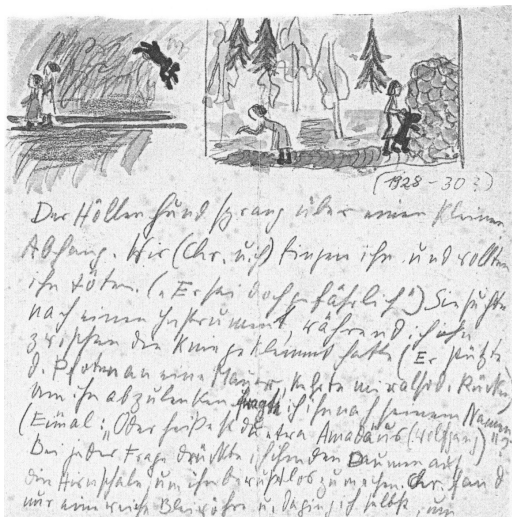 (1928-30?)
Der Höllenhund sprang über einen kleinen
Abhang. Wir (Chr. u. ich) fingen ihn und wollten
ihn töten. („Er sei doch gefährlich") Sie suchte
nach einem Instrument, während ich ihn
zwischen den Knien geklemmt hatte (Er stützte
d. Pfoten an eine Mauer, kehrte mir also d. Rücken
um ihn abzulenken fragte ich ihn nach seinem Namen
(Einmal: „Oder heißest du etwa Amadäus (Wolfgang)"?
Bei jeder Frage drückte ich ihm den Daumen auf
die Hirnschale, um ihn bewußtlos zu machen. Chr. fand
nur eine weiche Bleiröhre u. da ging ich selbst, um